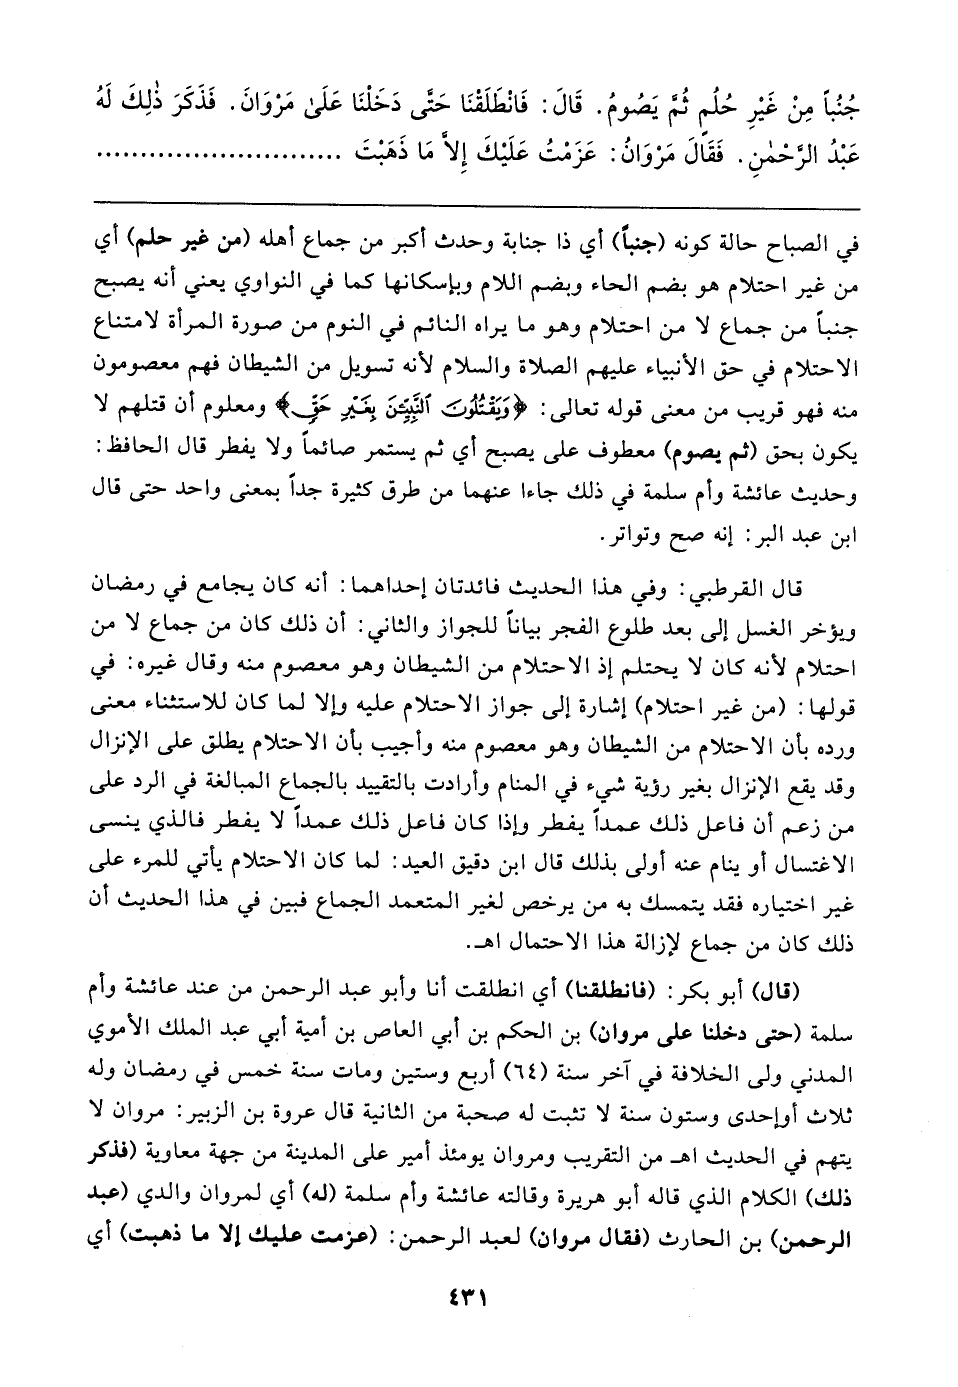 جُنُباً مِنْ غَيْرِ حُلُمٍ ثُمَّ يَصُومُ. قَالَ: فَانْطَلَقْنَا حَتَّى دَخَلْنَا عَلَىٰ مَرْوَانَ. فَذَكَرَ ذٰلِكَ لَهُ
عَبْدُ الرَّحْمٰنِ. فَقَالَ مَرْوَانُ: عَزَمْتُ عَلَيْكَ إِلاَّ مَا ذَهَبْتَ ............................
في الصباح حالة كونه (جنباً) أي ذا جنابة وحدث أكبر من جماع أهله (من غير حلم) أي
من غير احتلام هو بضم الحاء وبضم اللام وبإسكانها كما في النواوي يعني أنه يصبح
جنباً من جماع لا من احتلام وهو ما يراه النائم في النوم من صورة المرأة لامتناع
الاحتلام في حق الأنبياء عليهم الصلاة والسلام لأنه تسويل من الشيطان فهم معصومون
منه فهو قريب من معنى قوله تعالى: ﴿وَيَقْتُلُونَ ٱلنَّبِيِّـۧنَ بِغَيْرِ حَقٍّ﴾ ومعلوم أن قتلهم لا
يكون بحق (ثم يصوم) معطوف على يصبح أي ثم يستمر صائماً ولا يفطر قال الحافظ:
وحديث عائشة وأم سلمة في ذلك جاءا عنهما من طرق كثيرة جداً بمعنى واحد حتى قال
ابن عبد البر: إنه صح وتواتر.
قال القرطبي: وفي هذا الحديث فائدتان إحداهما: أنه كان يجامع في رمضان
ويؤخر الغسل إلى بعد طلوع الفجر بياناً للجواز والثاني: أن ذلك كان من جماع لا من
احتلام لأنه كان لا يحتلم إذ الاحتلام من الشيطان وهو معصوم منه وقال غيره: في
قولها: (من غير احتلام) إشارة إلى جواز الاحتلام عليه وإلا لما كان للاستثناء معنى
ورده بأن الاحتلام من الشيطان وهو معصوم منه وأجيب بأن الاحتلام يطلق على الإنزال
وقد يقع الإنزال بغير رؤية شيء في المنام وأرادت بالتقييد بالجماع المبالغة في الرد على
من زعم أن فاعل ذلك عمداً يفطر وإذا كان فاعل ذلك عمداً لا يفطر فالذي ينسى
الاغتسال أو ينام عنه أولى بذلك قال ابن دقيق العيد: لما كان الاحتلام يأتي للمرء على
غير اختياره فقد يتمسك به من يرخص لغير المتعمد الجماع فبين في هذا الحديث أن
ذلك كان من جماع لإزالة هذا الاحتمال اهـ.
(قال) أبو بكر: (فانطلقنا) أي انطلقت أنا وأبو عبد الرحمن من عند عائشة وأم
سلمة (حتى دخلنا على مروان) بن الحكم بن أبي العاص بن أمية أبي عبد الملك الأموي
المدني ولى الخلافة في آخر سنة (٦٤) أربع وستين ومات سنة خمس في رمضان وله
ثلاث أوإحدى وستون سنة لا تثبت له صحبة من الثانية قال عروة بن الزبير: مروان لا
يتهم في الحديث اهـ من التقريب ومروان يومئذ أمير على المدينة من جهة معاوية (فذكر
ذلك) الكلام الذي قاله أبو هريرة وقالته عائشة وأم سلمة (له) أي لمروان والدي (عبد
الرحمن) بن الحارث (فقال مروان) لعبد الرحمن: (عزمت عليك إلا ما ذهبت) أي
٤٣١